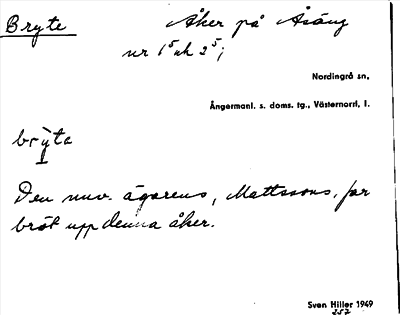 Bryte
Åker på Åsäng
nr 1⁵ ok 2⁵;
Nordingrå sn,
Ångermanl. s. doms. tg., Västernorrl. l.
brỳta
Den nuv. ägarens, Mattssons, far
bröt upp denna åker.
Sven Hiller 1949
252